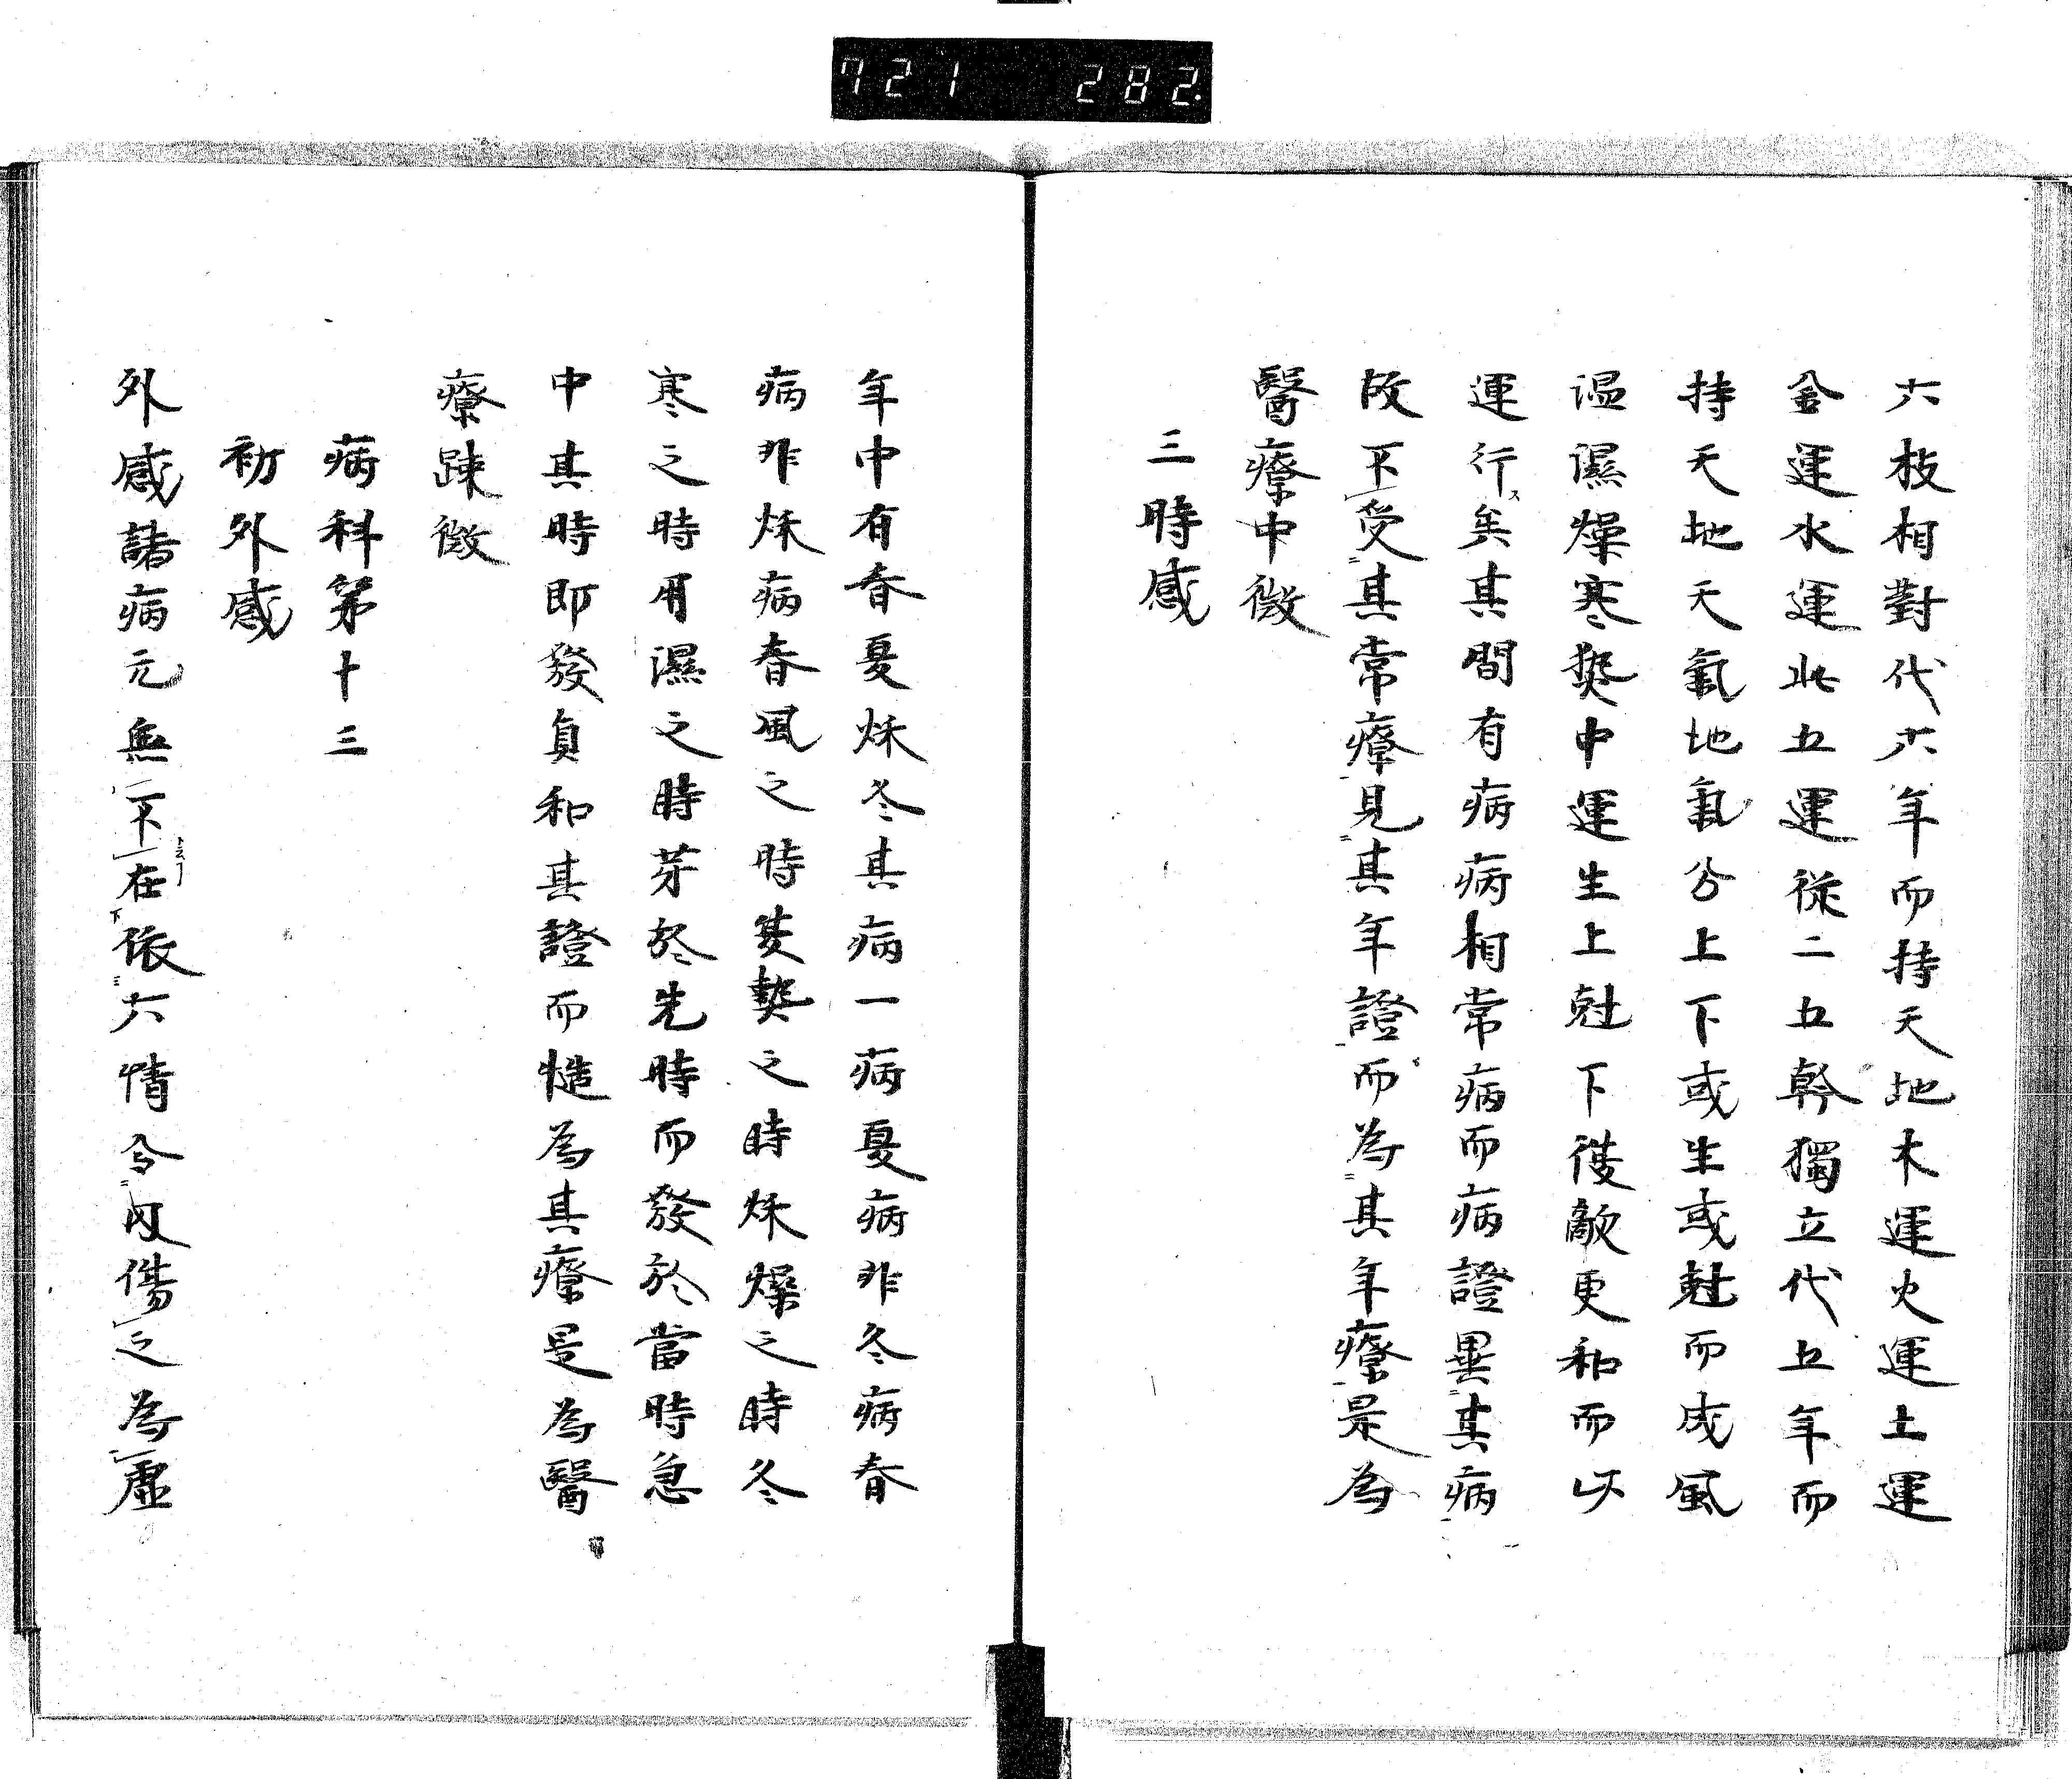 721 282
六枝相對代六年而持天地木運火運土運
金運水運此五運從二五幹獨立代五年而
持天地天氣地氣分上下或生或尅而成風
温濕燥寒𤍠中運生上尅下復敵更和而以
運行矣其間有病病相常病而病證畢其病
故不受其常療見其年證而為其年療是為
醫療中微
三時感
年中有春夏秌冬其病一病夏病非冬病春
病非秌病春風之時夏𤍠之時秌燥之時冬
寒之時用濕之時芽於先時而發於當時急
中其時即發負和其證而慥為其療是為醫
療踈微
病科第十三
初外感
外感諸病元無不在依六情令内傷之為虛